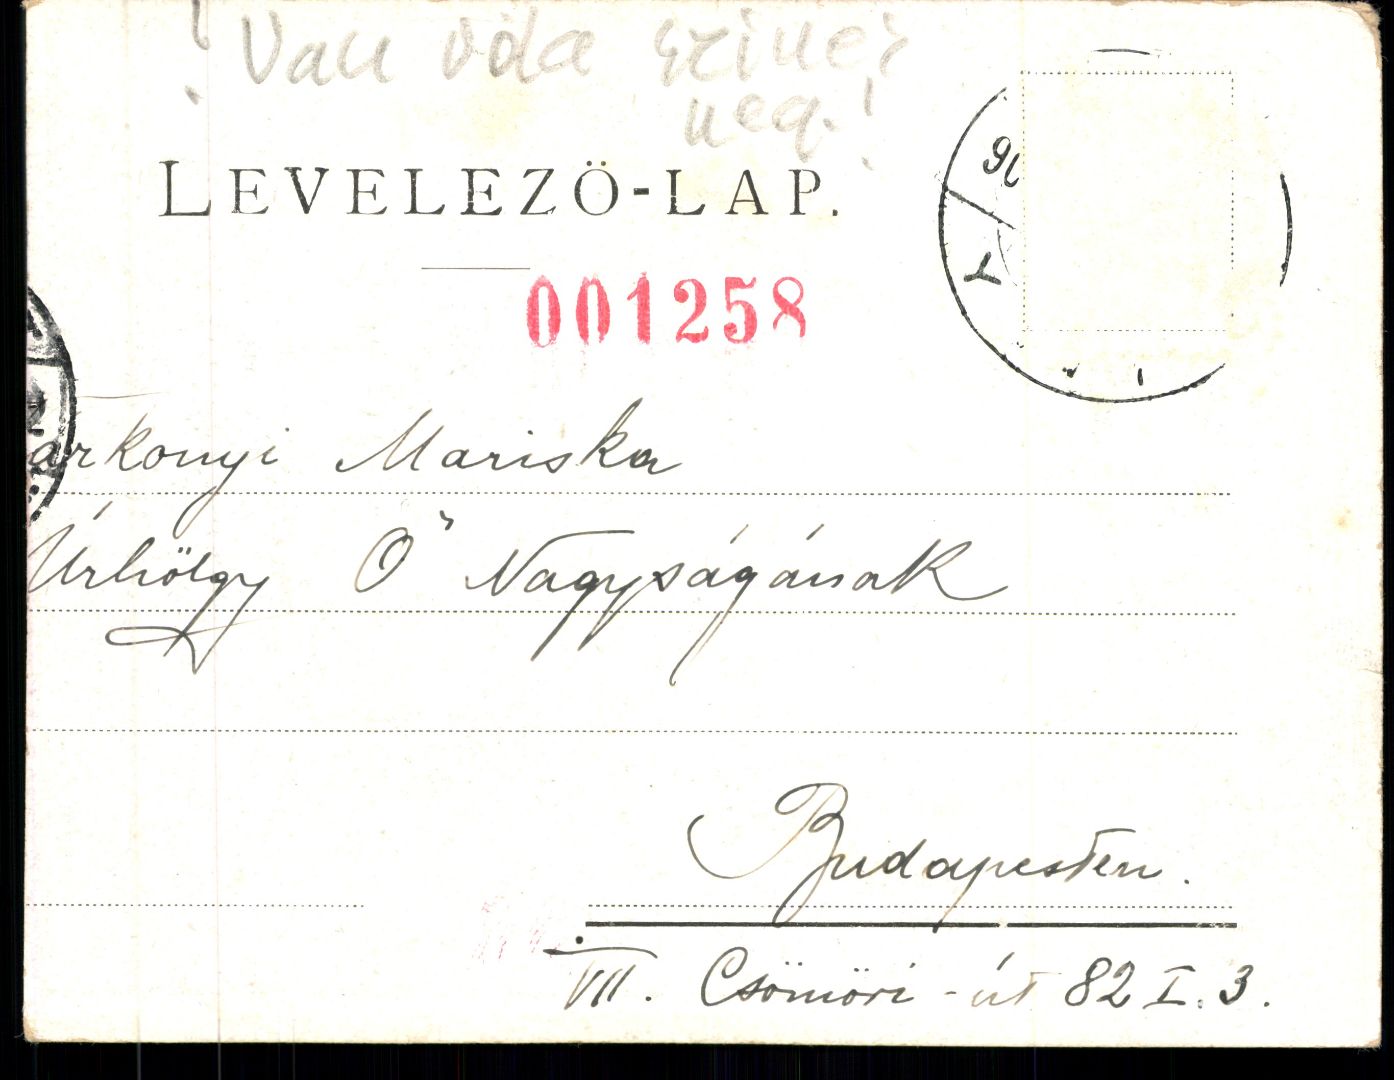 ! Van róla színes
neg.!
LEVELEZÖ-LAP.
001258
árkonyi Mariska
Úrhölgy Ő Nagyságának
Budapesten.
VII. Csömöri-út 82 I. 3.